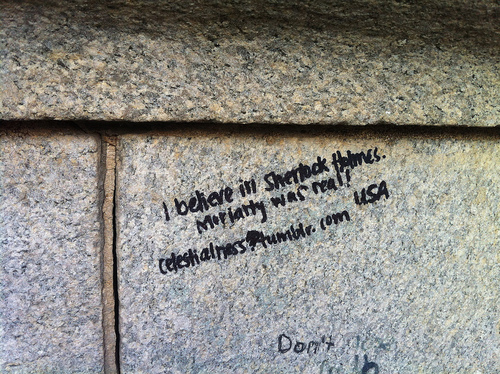 I believe in Sherlock Holmes.
Moriarty was real!
celestialness.tumblr.com USA
Don't